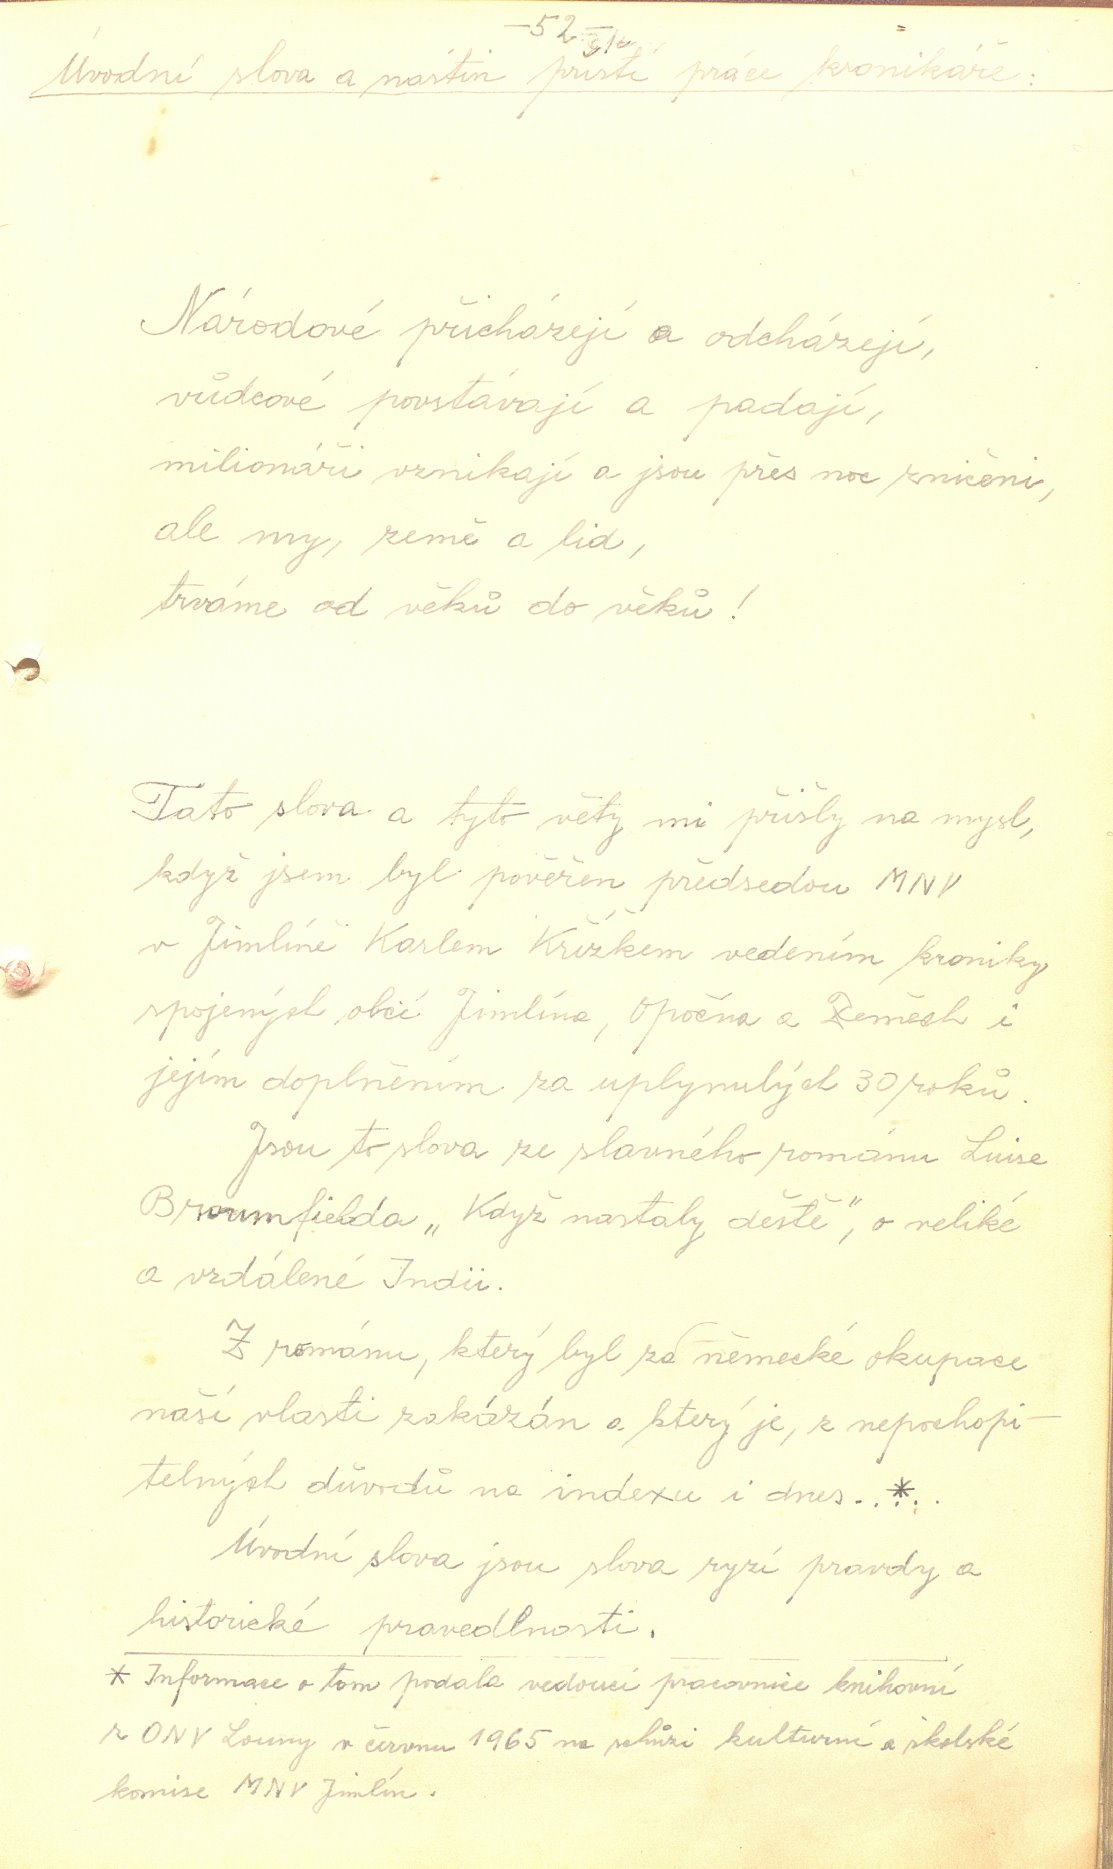 -52-
Úvodní slova a nástin příští práce kronikáře:
Národové přicházejí a odcházejí,
vůdcové povstávají a padají,
milionáři vznikají a jsou přes noc zničeni,
ale my, země a lid,
trváme od věků do věků!
Tato slova a tyto věty mi přišly na mysl,
když jsem byl pověřen předsedou MNV
v Jimlíně Karlem Křížkem vedením kroniky
spojených obcí Jimlína, Opočna a Zeměch i
jejím doplněním za uplynulých 30 roků.
Jsou to slova ze slavného románu Luise
Broumfielda „Když nastaly deště", o veliké
a vzdálené Indii.
Z románu, který byl za německé okupace
naší vlasti zakázán a který je, z nepochopi-
telných důvodů na indexu i dnes..*..
Úvodní slova jsou slova ryzí pravdy a
historické pravedlnosti.
* Informace o tom podala vedoucí pracovnice knihovní
z ONV Louny v červnu 1965 na schůzi kulturní a školské
komise MNV Jimlín.